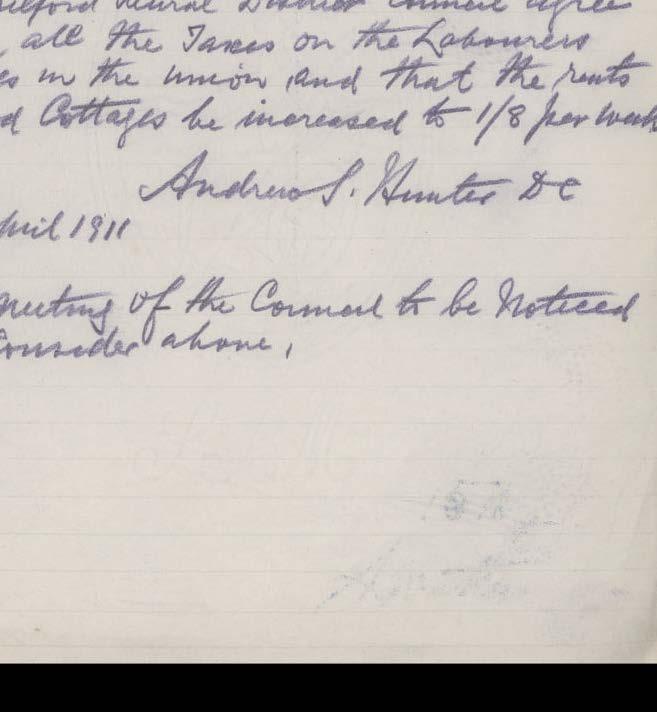 ilford Rural District Council agree
, all the Taxes on the Labourers
es in the union, and that the rents
d Cottages be increased to 1/8 per week
Andrew S. Hunter DC
pril 1911
meeting of the Council to be Noticed
Consider above,